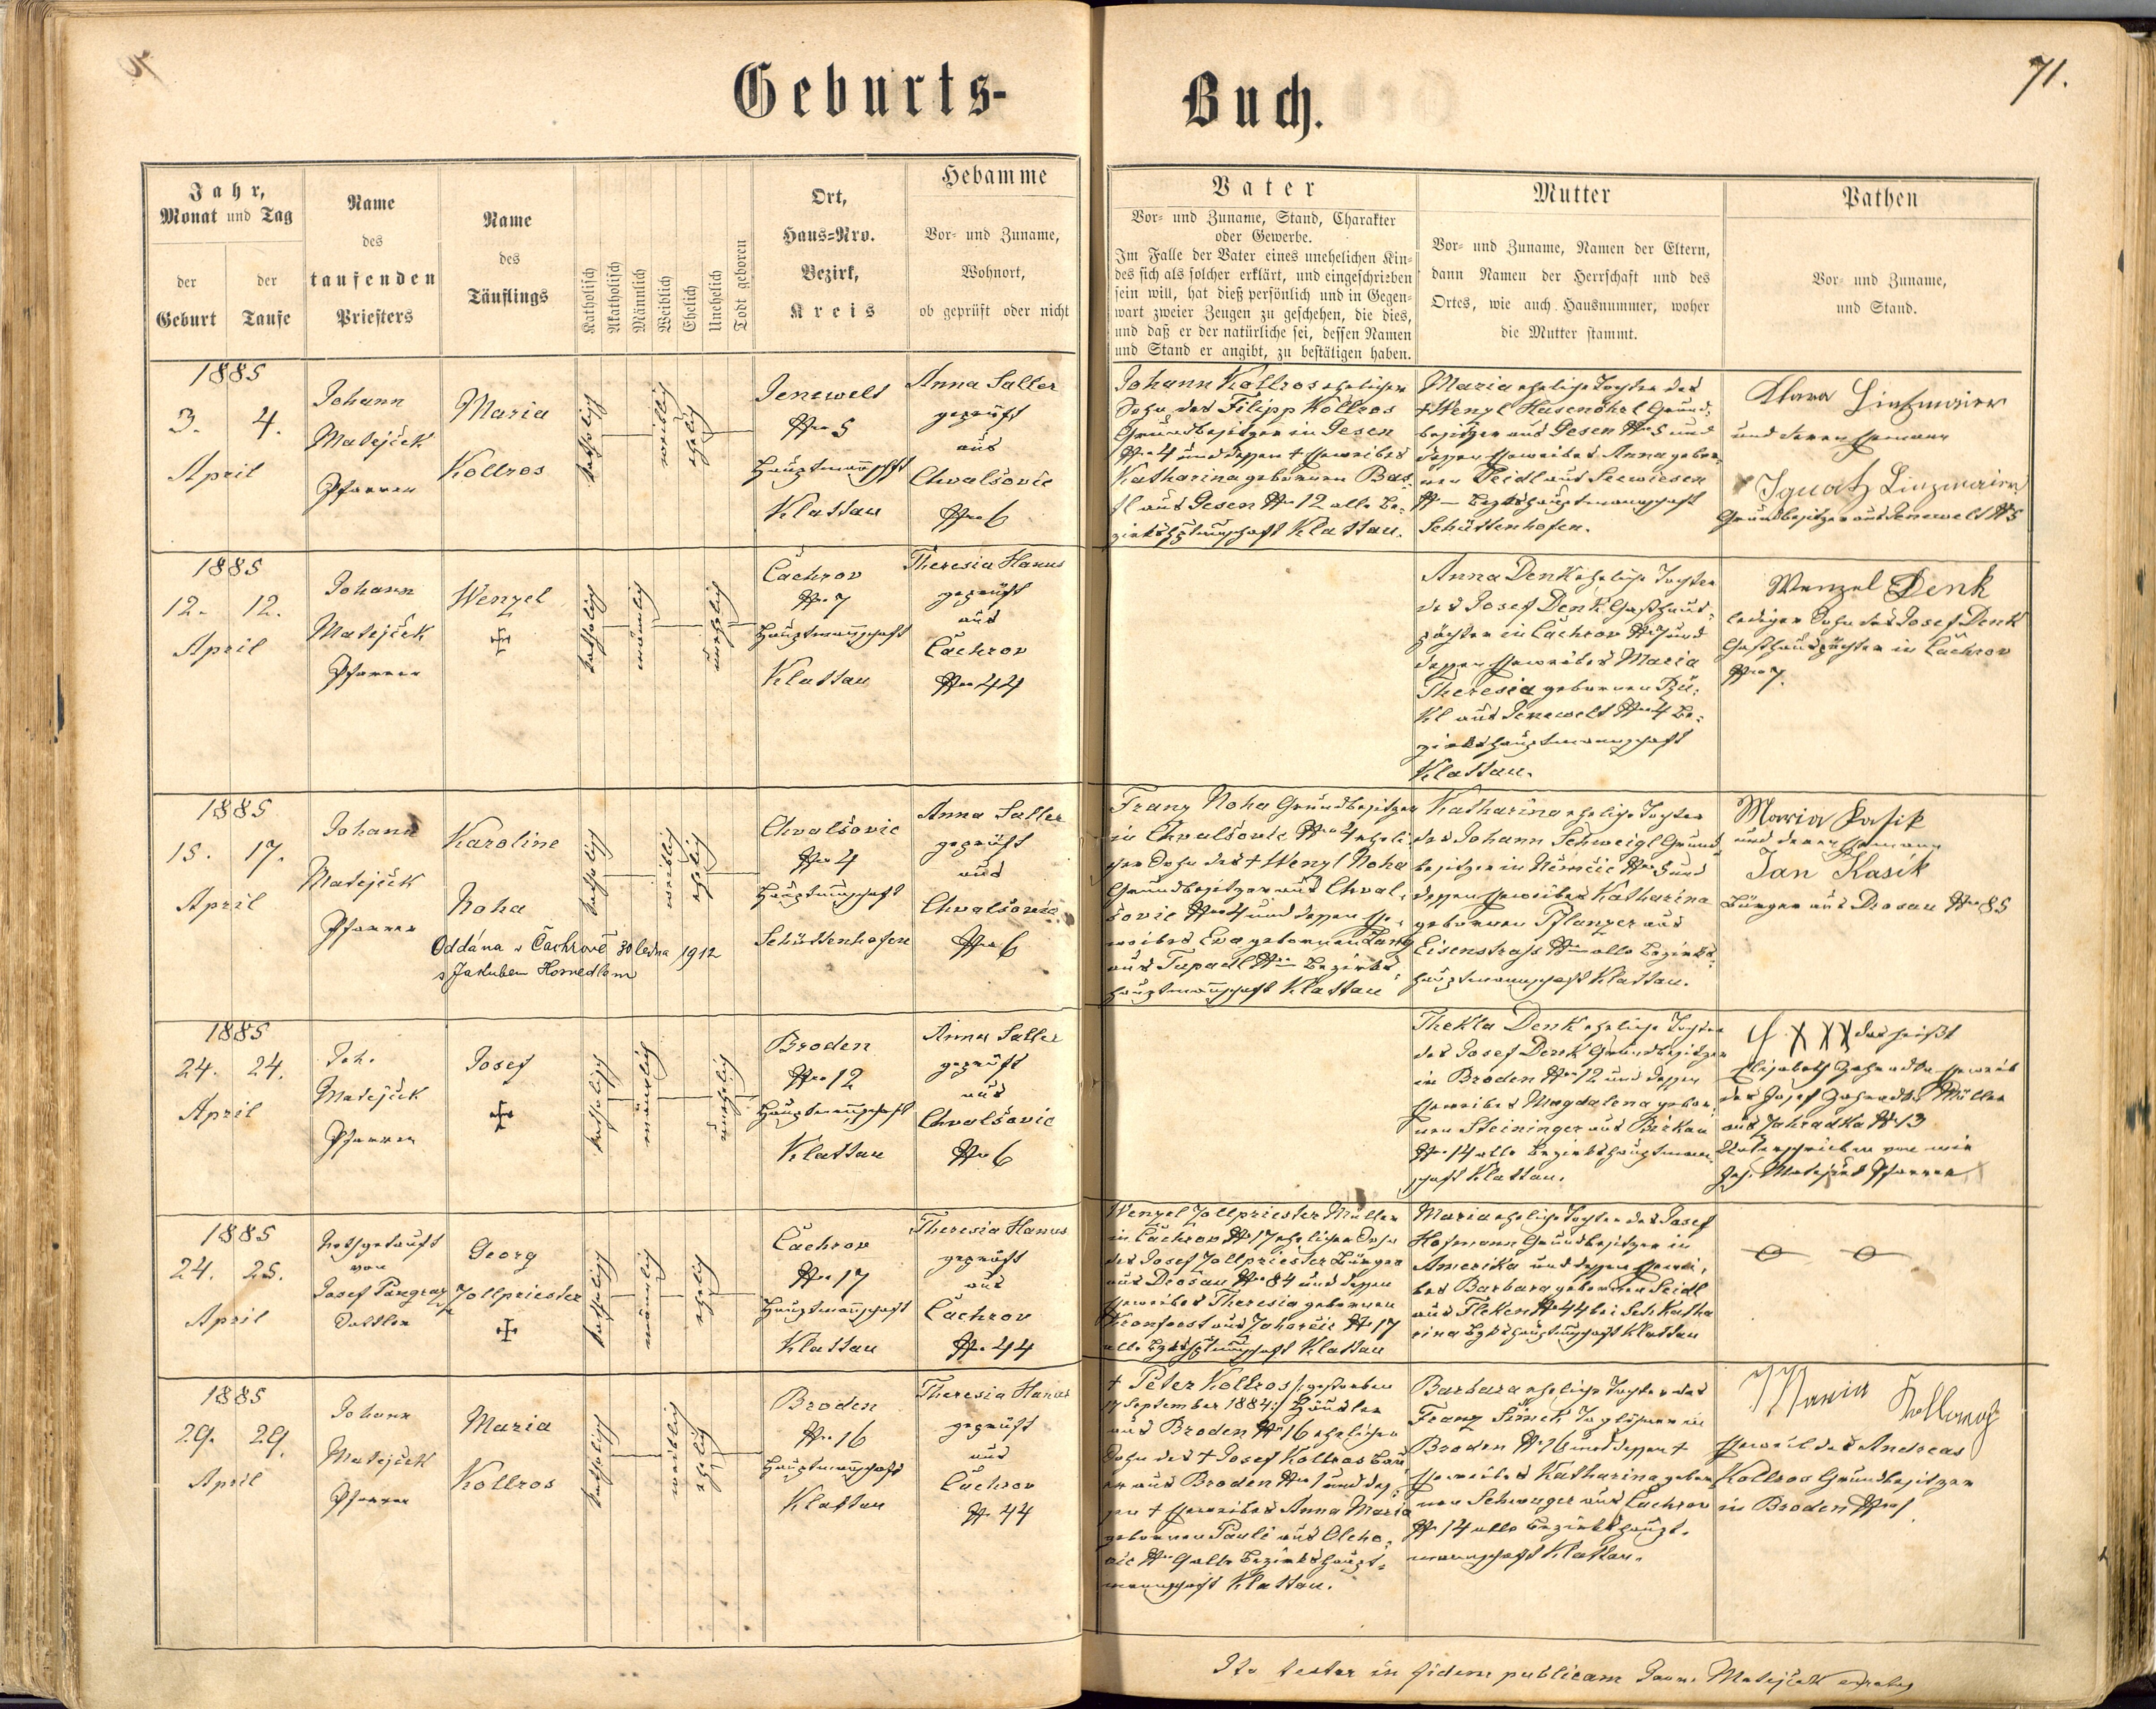 71.
Geburts-Buch.
Jahr,
Monat und Tag
der Geburt
der Taufe
Name
des
taufenden
Priesters
Name
des
Täuflings
Katholisch
Akatholisch
Männlich
Weiblich
Ehelich
Unehelich
Todt geboren
Ort,
Haus-Nro.
Bezirk,
Kreis
Hebamme
Vor- und Zuname,
Wohnort,
ob geprüft oder nicht
Vater
Vor- und Zuname, Stand, Charakter
oder Gewerbe.
Im Falle der Vater eines unehelichen Kin-
des sich als solcher erklärt, und eingeschrieben
sein will, hat dieß persönlich und in Gegen-
wart zweier Zeugen zu geschehen, die dies,
und daß er der natürliche sei, dessen Namen
und Stand er angibt, zu bestätigen haben.
Mutter
Vor- und Zuname, Namen der Eltern,
dann Namen der Herrschaft und des
Ortes, wie auch Hausnummer, woher
die Mutter stammt.
Pathen
Vor- und Zuname,
und Stand.
1885
3. 4.
April
Johann
Matejček
Pfarrer
Maria
Kollros
katholisch
weiblich
ehelich
Jenewelt
Nro 5
Hauptmannschft
Klattau
Anna Saller
geprüft
aus
Chvalšovic
Nro 6
Johann Kollros ehelicher
Sohn des Filipp Kollros
Grundbesitzer in Gesen
Nro 4 und dessen + Eheweibes
Katharina gebornen Bas-
tl aus Gesen Nro 12 alle Be-
zirkshptmnschaft Klattau.
Maria eheliche Tochter des
+ Wenzl Hasenöhrl Grund-
besitzer aus Gesen Nro 5 und
dessen Eheweibes Anna gebor-
nen Seidl aus Seewiesen
N — Bezkshauptmannschaft
Schüttenhofen.
Klara Linzmaier
und deren Ehemann
Ignatz Linzmaier
Grundbesitzer aus Jenewelt N 5
1885
12. 12.
April
Johann
Matejček
Pfarrer
Wenzel
katholisch
männlich
unehelich
Čachrov
Nro 7
Hauptmannschaft
Klattau
Theresia Hanus
geprüft
aus
Čachrov
Nro 44
Anna Denk eheliche Tochter
des Josef Denk Gasthaus-
pächter in Čachrov Nro 7 und
dessen Eheweibes Maria
Theresia gebornen
aus Jenewelt Nro 4 Be-
zirkshauptmannschaft
Klattau.
Wenzel Denk
lediger Sohn des Josef Denk
Gasthauspächter in Čachrov
Nro 7.
1885
15. 17.
April
Johann
Matejček
Pfarrer
Karoline
Noha
Oddána v Čachrově 30 ledna 1912
s Jakubem
katholisch
weiblich
ehelich
Chvalšovic
Nro 4
Hauptmnschaft
Schüttenhofen
Anna Saller
geprüft
aus
Chvalšovic
Nro 6
Franz Noha Grundbesitzer
in Chvalšovic Nro 4 eheli-
cher Sohn des + Wenzl Noha
Grundbesitzer aus Chval-
šovic Nro 4 und dessen Ehe-
weibes Eva gebornen Lang
aus Tupadl N — Bezirks-
hauptmannschaft Klattau
Katharina eheliche Tochter
des Johann Schweigl Grund-
besitzer in Němčic Nro 5 und
dessen Eheweibes Katharina
gebornen Pflanzer aus
Eisenstraß N — alle Bezirks-
hauptmannschaft Klattau.
Maria Kasik
und deren Ehemann
Jan Kasík
Bürger aus Drosau Nro 85
1885
24. 24.
April
Joh.
Matejček
Pfarrer
Josef
katholisch
männlich
unehelich
Broden
Nro 12
Hauptmannschaft
Klattau
Anna Saller
geprüft
aus
Chvalšovic
Nro 6
Thekla Denk eheliche Tochter
des Josef Denk Grundbesitzer
in Broden Nro 12 und dessen
Eheweibes Magdalena gebor-
nen Steininger aus Birkau
Nro 14 alle Bezirkshauptmann-
schaft Klattau.
XXX das heißt
Elisabeth Eheweib
des Josef Müller
aus Zahradka N 13
Unterschrieben von mir
Joh. Matejček Pfarrer
1885
24. 25.
April
Nothgetauft
von
Josef Pangraz
Sattler
Georg
Zollpriester
katholisch
männlich
ehelich
Čachrov
Nro 17
Hauptmannschaft
Klattau
Theresia Hanus
geprüft
aus
Čachrov
Nr. 44
Wenzel Zollpriester Müller
in Čachrov N 17 ehelicher Sohn
des Josef Zollpriester Bürger
aus Drosau Nro 84 und dessen
Eheweibes Theresia gebornen
aus Zahorčic N 17
alle Bzkshptmnschaft Klattau
Maria eheliche Tochter des Josef
Hofmann Grundbesitzer in
Amerika und dessen Ehewei-
bes Barbara gebornen Seidl
aus Fleken N 44 bei Skt. Katha
rina Bzkshauptmnschaft Klattau
1885
29. 29.
April
Johann
Matejček
Pfarrer
Maria
Kollros
katholisch
weiblich
ehelich
Broden
Nro 16
Hauptmannschaft
Klattau
Theresia Hanus
geprüft
aus
Čachrov
N. 44
+ Peter Kollros /: gestorben
17 September 1884 :/ Häusler
aus Broden Nro 16 ehelicher
Sohn des + Josef Kollros Bau
er aus Broden Nro 1 und des-
sen + Eheweibes Anna Maria
gebornen Pauli aus Olcho-
vic Nro 9 alle Bezirkshaupt-
mannschaft Klattau.
Barbara eheliche Tochter des
Franz Šimek Taglöhner in
Broden N 16 und dessen +
Eheweibes Katharina gebor
nen Schwager aus Čachrov
N 14 alle Bezirkshaupt-
mannschaft Klattau.
Maria Kollros
Eheweib des Andreas
Kollros Grundbesitzer
in Broden Nro 1.
Ita testor in fidem publicam Joan. Matejček